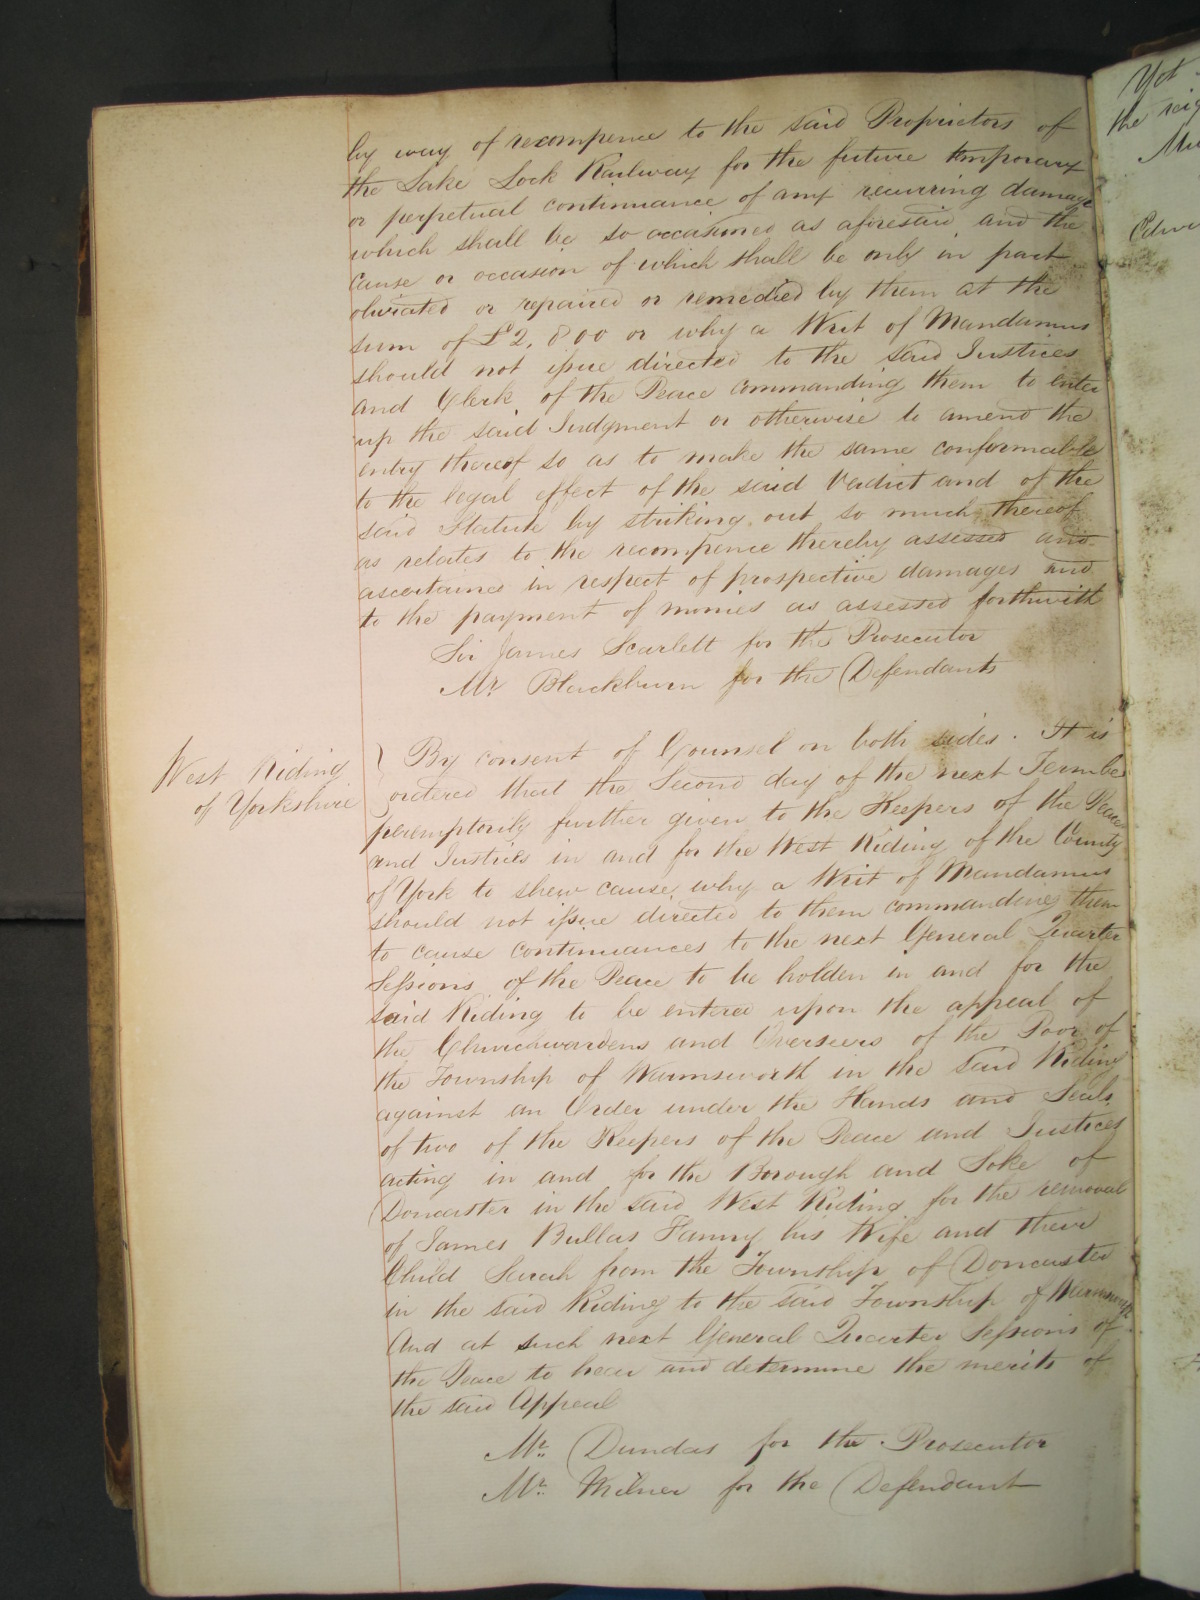 by way of recompence to the said Proprietors of
the Lake Lock Railway for the future temporary
or perpetual continuance of any recurring damage
which shall be so occasioned as aforesaid and the
cause or occasion of which shall be only in part
obviated or repaired or remedied by them at the
sum of £2,800 or why a Writ of Mandamus
should not issue directed to the said Justices
and Clerk of the Peace commanding them to enter
up the said Judgment or otherwise to amend the
entry thereof so as to make the same conformable
to the legal effect of the said Verdict and of the
said Statute by striking out so much thereof
as relates to the recompence thereby assessed and
ascertained in respect of prospective damages and
to the payment of monies as assessed forthwith
Sir James Scarlett for the Prosecutor
Mr Blackburn for the Defendants
West Riding
of Yorkshire
By consent of Counsel on both sides. It is
ordered that the Second day of the next Term be
peremptorily further given to the Keepers of the Peace
and Justices in and for the West Riding of the County
of York to shew cause why a Writ of Mandamus
should not issue directed to them commanding them
to cause continuances to the next General Quarter
Sessions of the Peace to be holden in and for the
said Riding to be entered upon the appeal of
the Churchwardens and Overseers of the Poor of
the Township of Warmsworth in the said Riding
against an Order under the Hands and Seals
of two of the Keepers of the Peace and Justices
acting in and for the Borough and Soke of
Doncaster in the said West Riding for the removal
of James Bullas Fanny his Wife and their
Child Sarah from the Township of Doncaster
in the said Riding to the said Township of Warmsworth
And at such next General Quarter Sessions of
the Peace to hear and determine the merits of
the said Appeal
Mr. Dundas for the Prosecutor
Mr. Milner for the Defendant
Yet
the
Edwa